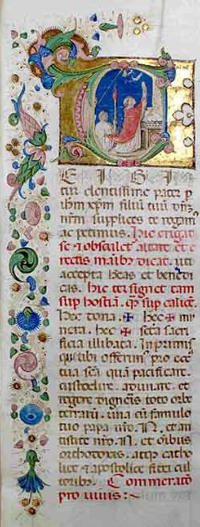 T
E I G I
tur clementissime pater p
ihm xpm filiū tuū dnm
nrm supplices te rogam
ac petimus. Hic erigat
se & osculet altare et e
rectis manibz dicat. uti
accepta heas et benedi
cas. hic ter signet tam
sup hostiā. qz sup calicē.
Hec dona. ✠ hec ✠ mu
nera. hec ✠ scta sacri
ficia illibata. Inprimis
que tibi offerim pro ecc
sca catholica quā pacificare.
custodire. adunare. et
regere digneris toto orbe
terrarū. una cū famulo
tuo papa nro .N. et an
tistite nro .N. et oibus
orthodoxis. atqz catho
lice & apostolice fidei cul
toribz. Commemoratō
pro vivis: